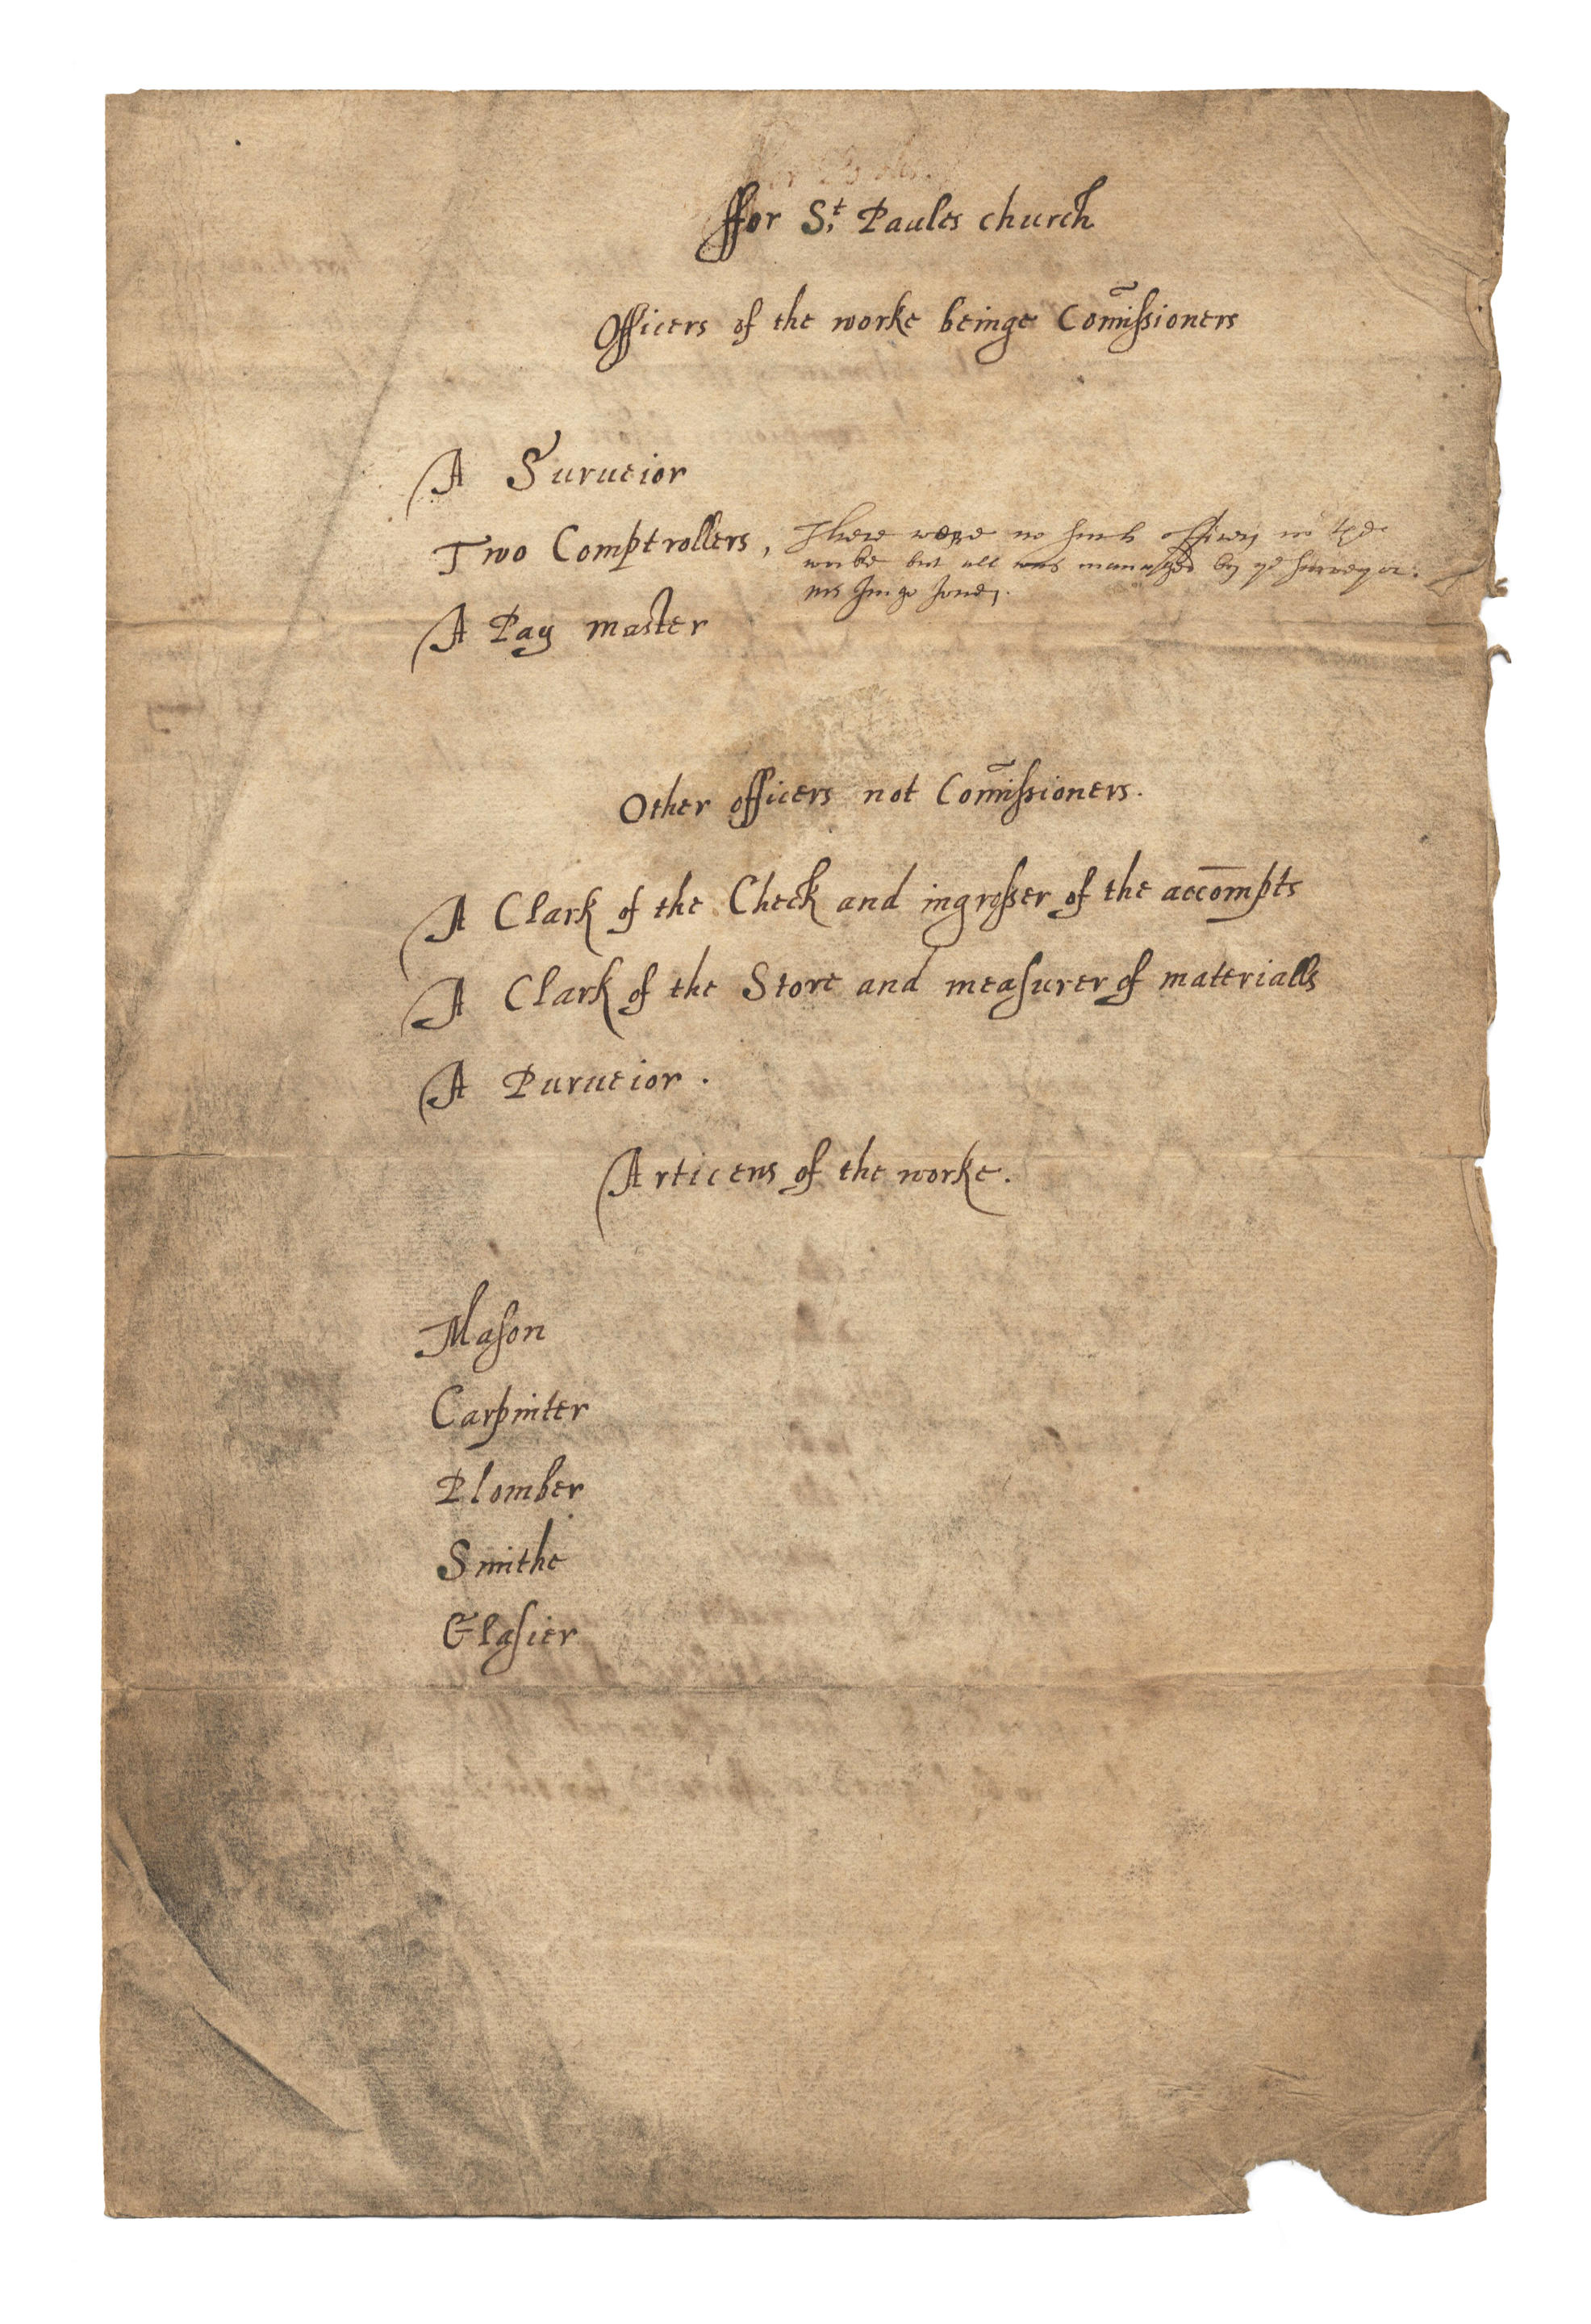 ffor St Paules church
Officers of the worke beinge Com̃issioners
A Surueior
Two Comptrollers, There were no such officers in the
worke but all was managed by ye surveyor.
mr Inigo Jones.
A Pay master
Other officers not Com̃issioners.
A Clark of the Check and ingrosser of the accōmpts
A Clark of the Store and measurer of materialls
A Purueior.
Articens of the worke.
Mason
Carpinter
Plomber
Smithe
Glasier